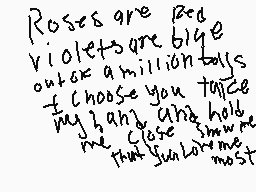 Roses are Red
violets are blue
out of a million boys
I choose you take
my hand and hold
me close show me
that you love me
most